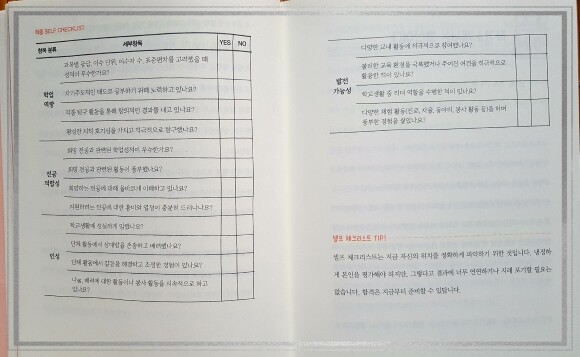 학종 SELF CHECKLIST
항목 분류 세부항목 YES NO
학업
역량
과목별 등급, 이수 단위, 이수자 수, 표준편차를 고려했을 때
성적이 우수한가요?
자기주도적인 태도로 공부하기 위해 노력하고 있나요?
각종 탐구 활동을 통해 창의적인 결과를 내고 있나요?
왕성한 지적 호기심을 가지고 적극적으로 탐구했나요?
전공
적합성
희망 전공과 관련된 학업성적이 우수한가요?
희망 전공과 관련된 활동이 풍부했나요?
희망하는 전공에 대해 올바르게 이해하고 있나요?
지원하려는 전공에 대한 흥미와 열정이 충분히 드러나나요?
인성
학교생활에 성실하게 임했나요?
단체 활동에서 상대방을 존중하고 배려했나요?
단체 활동에서 갈등을 해결하고 조정한 경험이 있나요?
나눔, 배려에 대한 활동이나 봉사 활동을 지속적으로 하고
있나요?
발전
가능성
다양한 교내 활동에 적극적으로 참여했나요?
불리한 교육 환경을 극복했거나 주어진 여건을 적극적으로
활용한 적이 있나요?
학교생활 중 리더 역할을 수행한 적이 있나요?
다양한 체험 활동(진로, 자율, 동아리, 봉사 활동 등)을 하며
풍부한 경험을 쌓았나요?
셀프 체크리스트 TIP!
셀프 체크리스트는 지금 자신의 위치를 정확하게 파악하기 위한 것입니다. 냉정하
게 본인을 평가해야 하지만, 그렇다고 결과에 너무 연연하거나 지레 포기할 필요는
없습니다. 합격은 지금부터 준비할 수 있답니다.